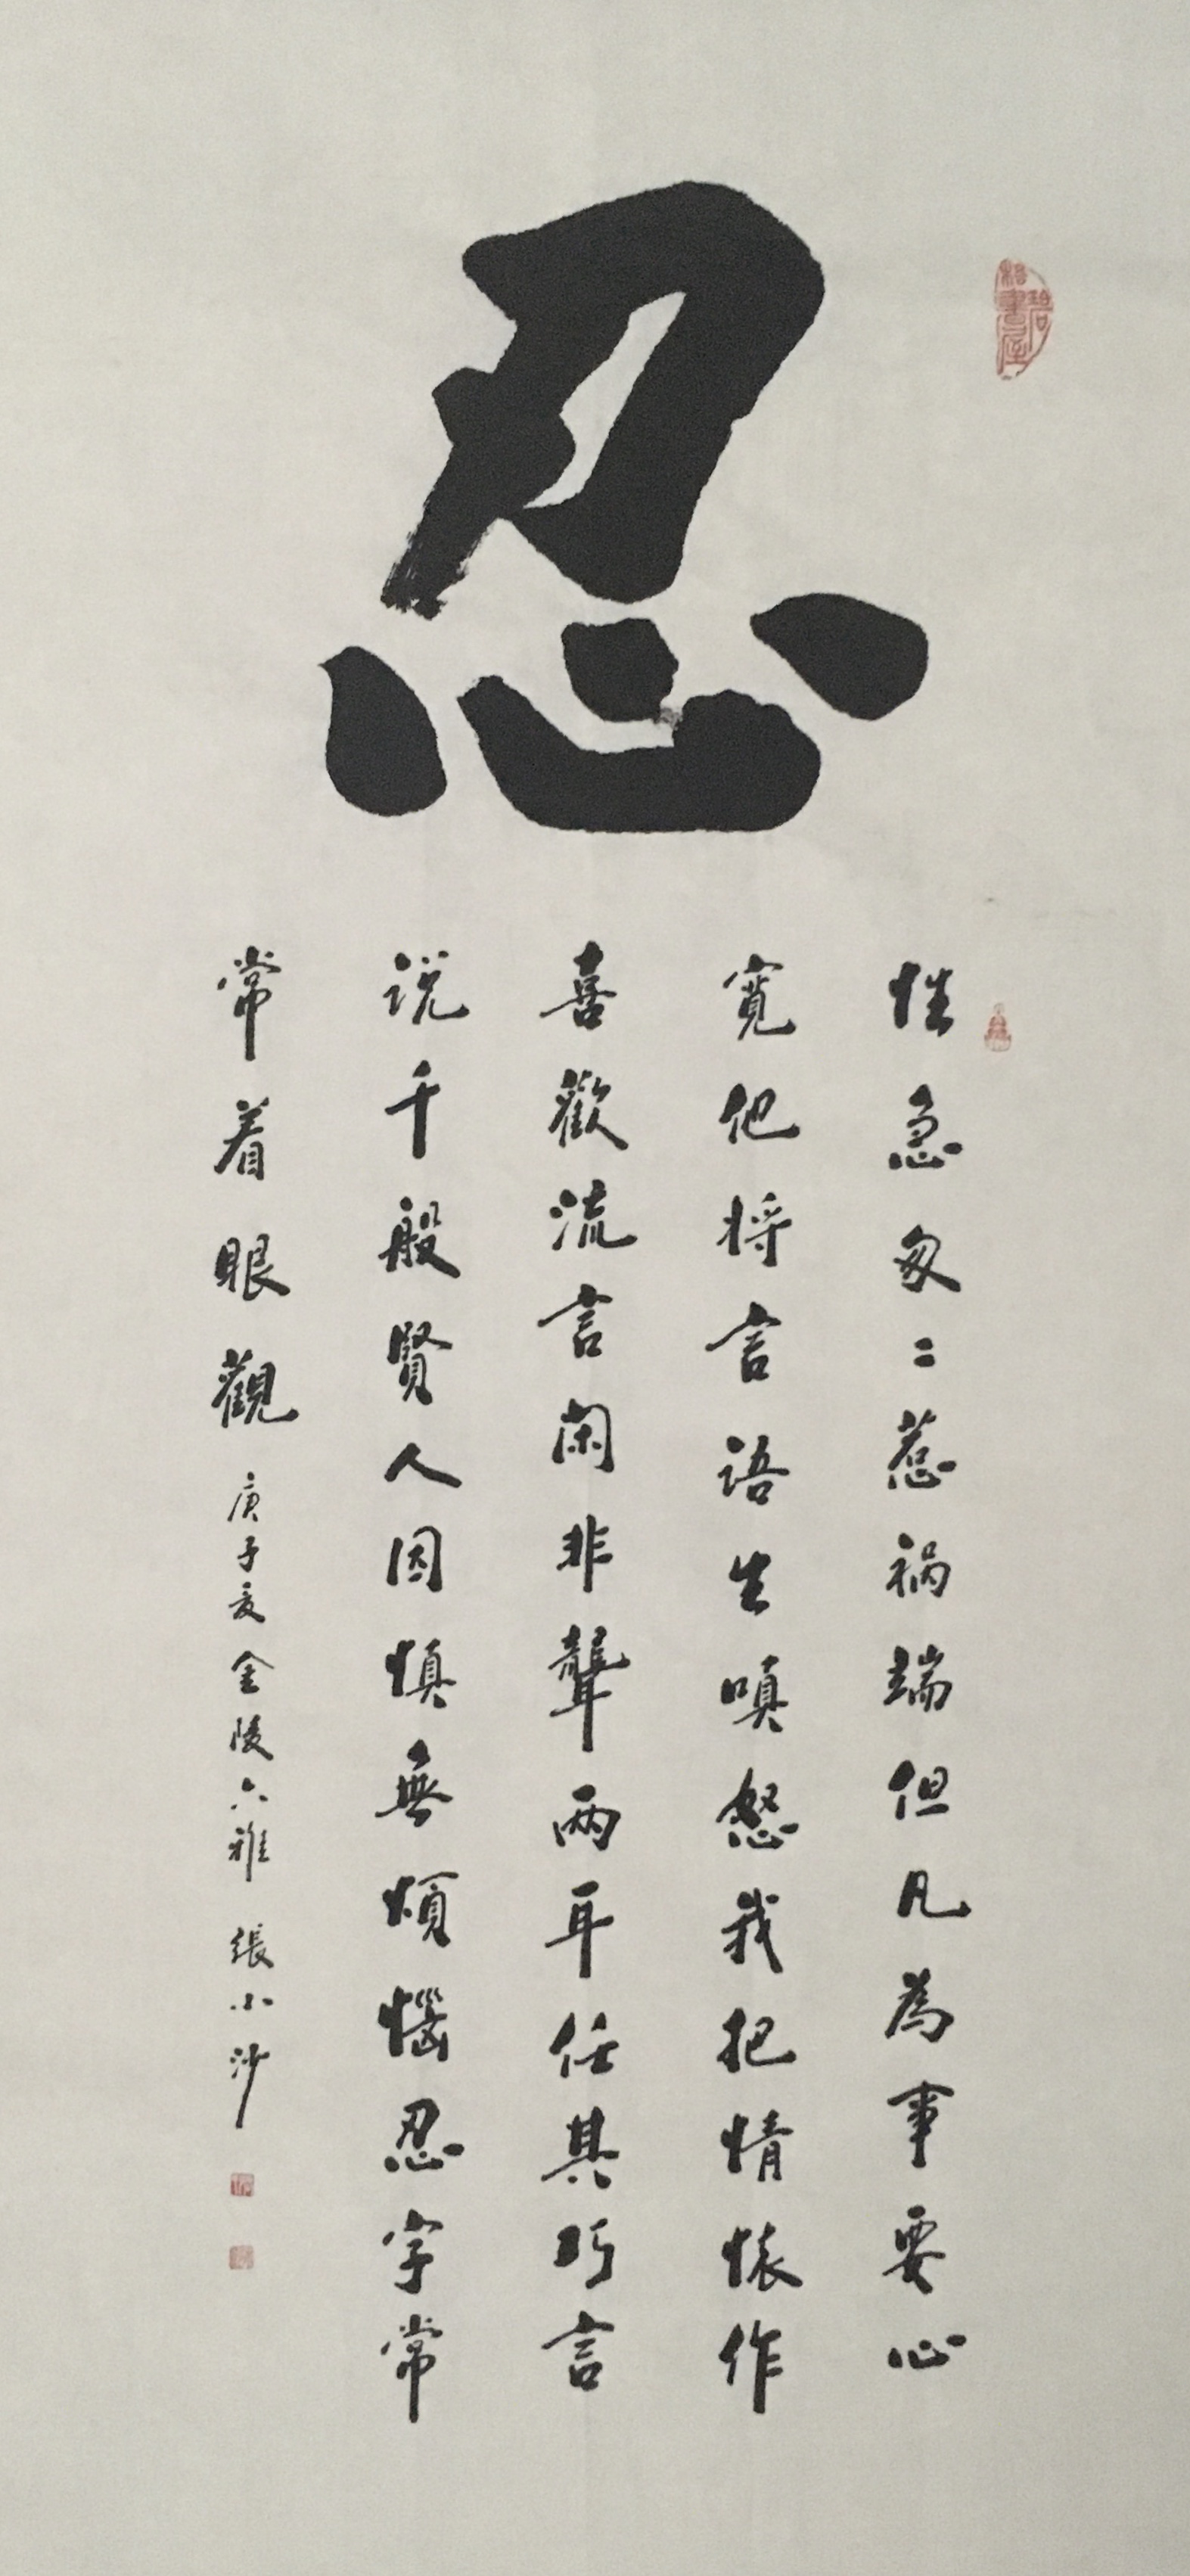 忍
性急匆二惹祸端但凡為事要心
寬他将言语生嗔怒我把情懷作
喜歡流言闲非聾两耳任其巧言
说千般賢人因慎無煩惱忍字常
常着眼觀
庚子夏金陵六雅 張小沙